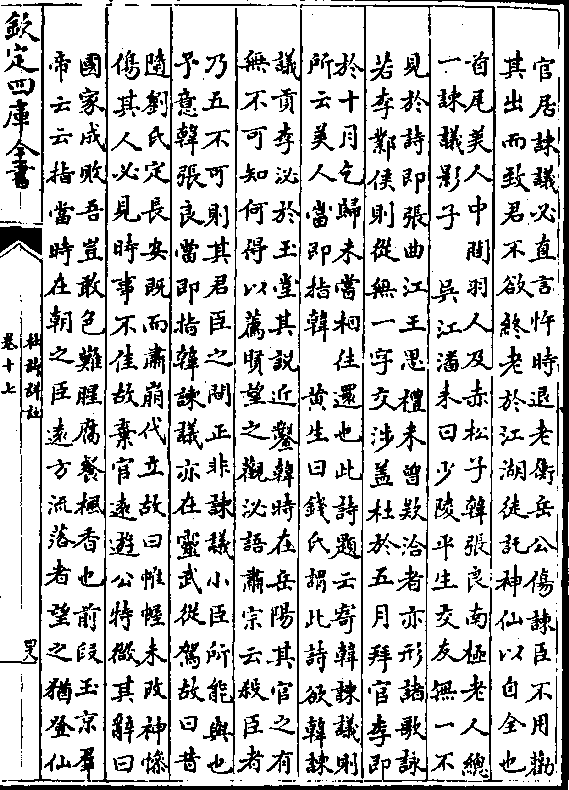 官居諫議必直言忤時退老衡岳公傷諫臣不用勸
其出而致君不欲終老於江湖徒託神仙以自全也
首尾美人中間羽人及赤松子韓張良南極老人總
一諫議影子　吳江潘耒曰少陵平生交友無一不
見於詩即張曲江王思禮未曾欵洽者亦形諸歌詠
若李鄴侯則從無一字交涉盖杜於五月拜官李即
於十月乞歸未嘗相往還也此詩題云寄韓諫議則
所云美人當即指韓　黄生曰錢氏謂此詩欲韓諫
議貢李泌於玉堂其說近鑿韓時在岳陽其官之有
無不可知何得以薦賢望之觀泌語肅宗云殺臣者
乃五不可則其君臣之間正非諫議小臣所能與也
予意韓張良當即指韓諫議亦在靈武從駕故曰昔
隨劉氏定長安既而肅崩代立故曰帷幄未改神慘
傷其人必見時事不佳故棄官遠遊公特微其辭曰
國家成敗吾豈敢色難腥腐餐楓香也前段玉京羣
帝云云指當時在朝之臣遠方流落者望之猶登仙
欽定四庫全書
杜詩詳註
卷十七
四八